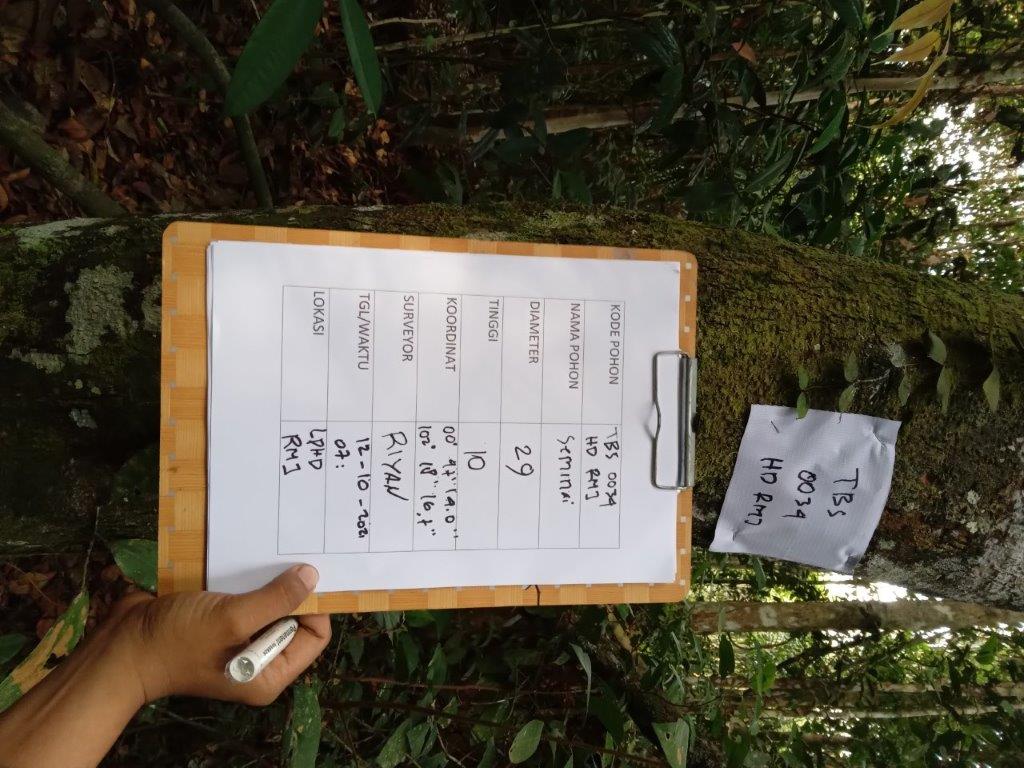 KODE POHON TBS 0039
HD RMJ
NAMA POHON Seminai
DIAMETER 29
TINGGI 10
KOORDINAT 00° 47"
102° 18"
SURVEYOR RIYAN
TGL/WAKTU 12-10-2021
07:
LOKASI LPHD
RMJ
TBS
0039
HD RMJ